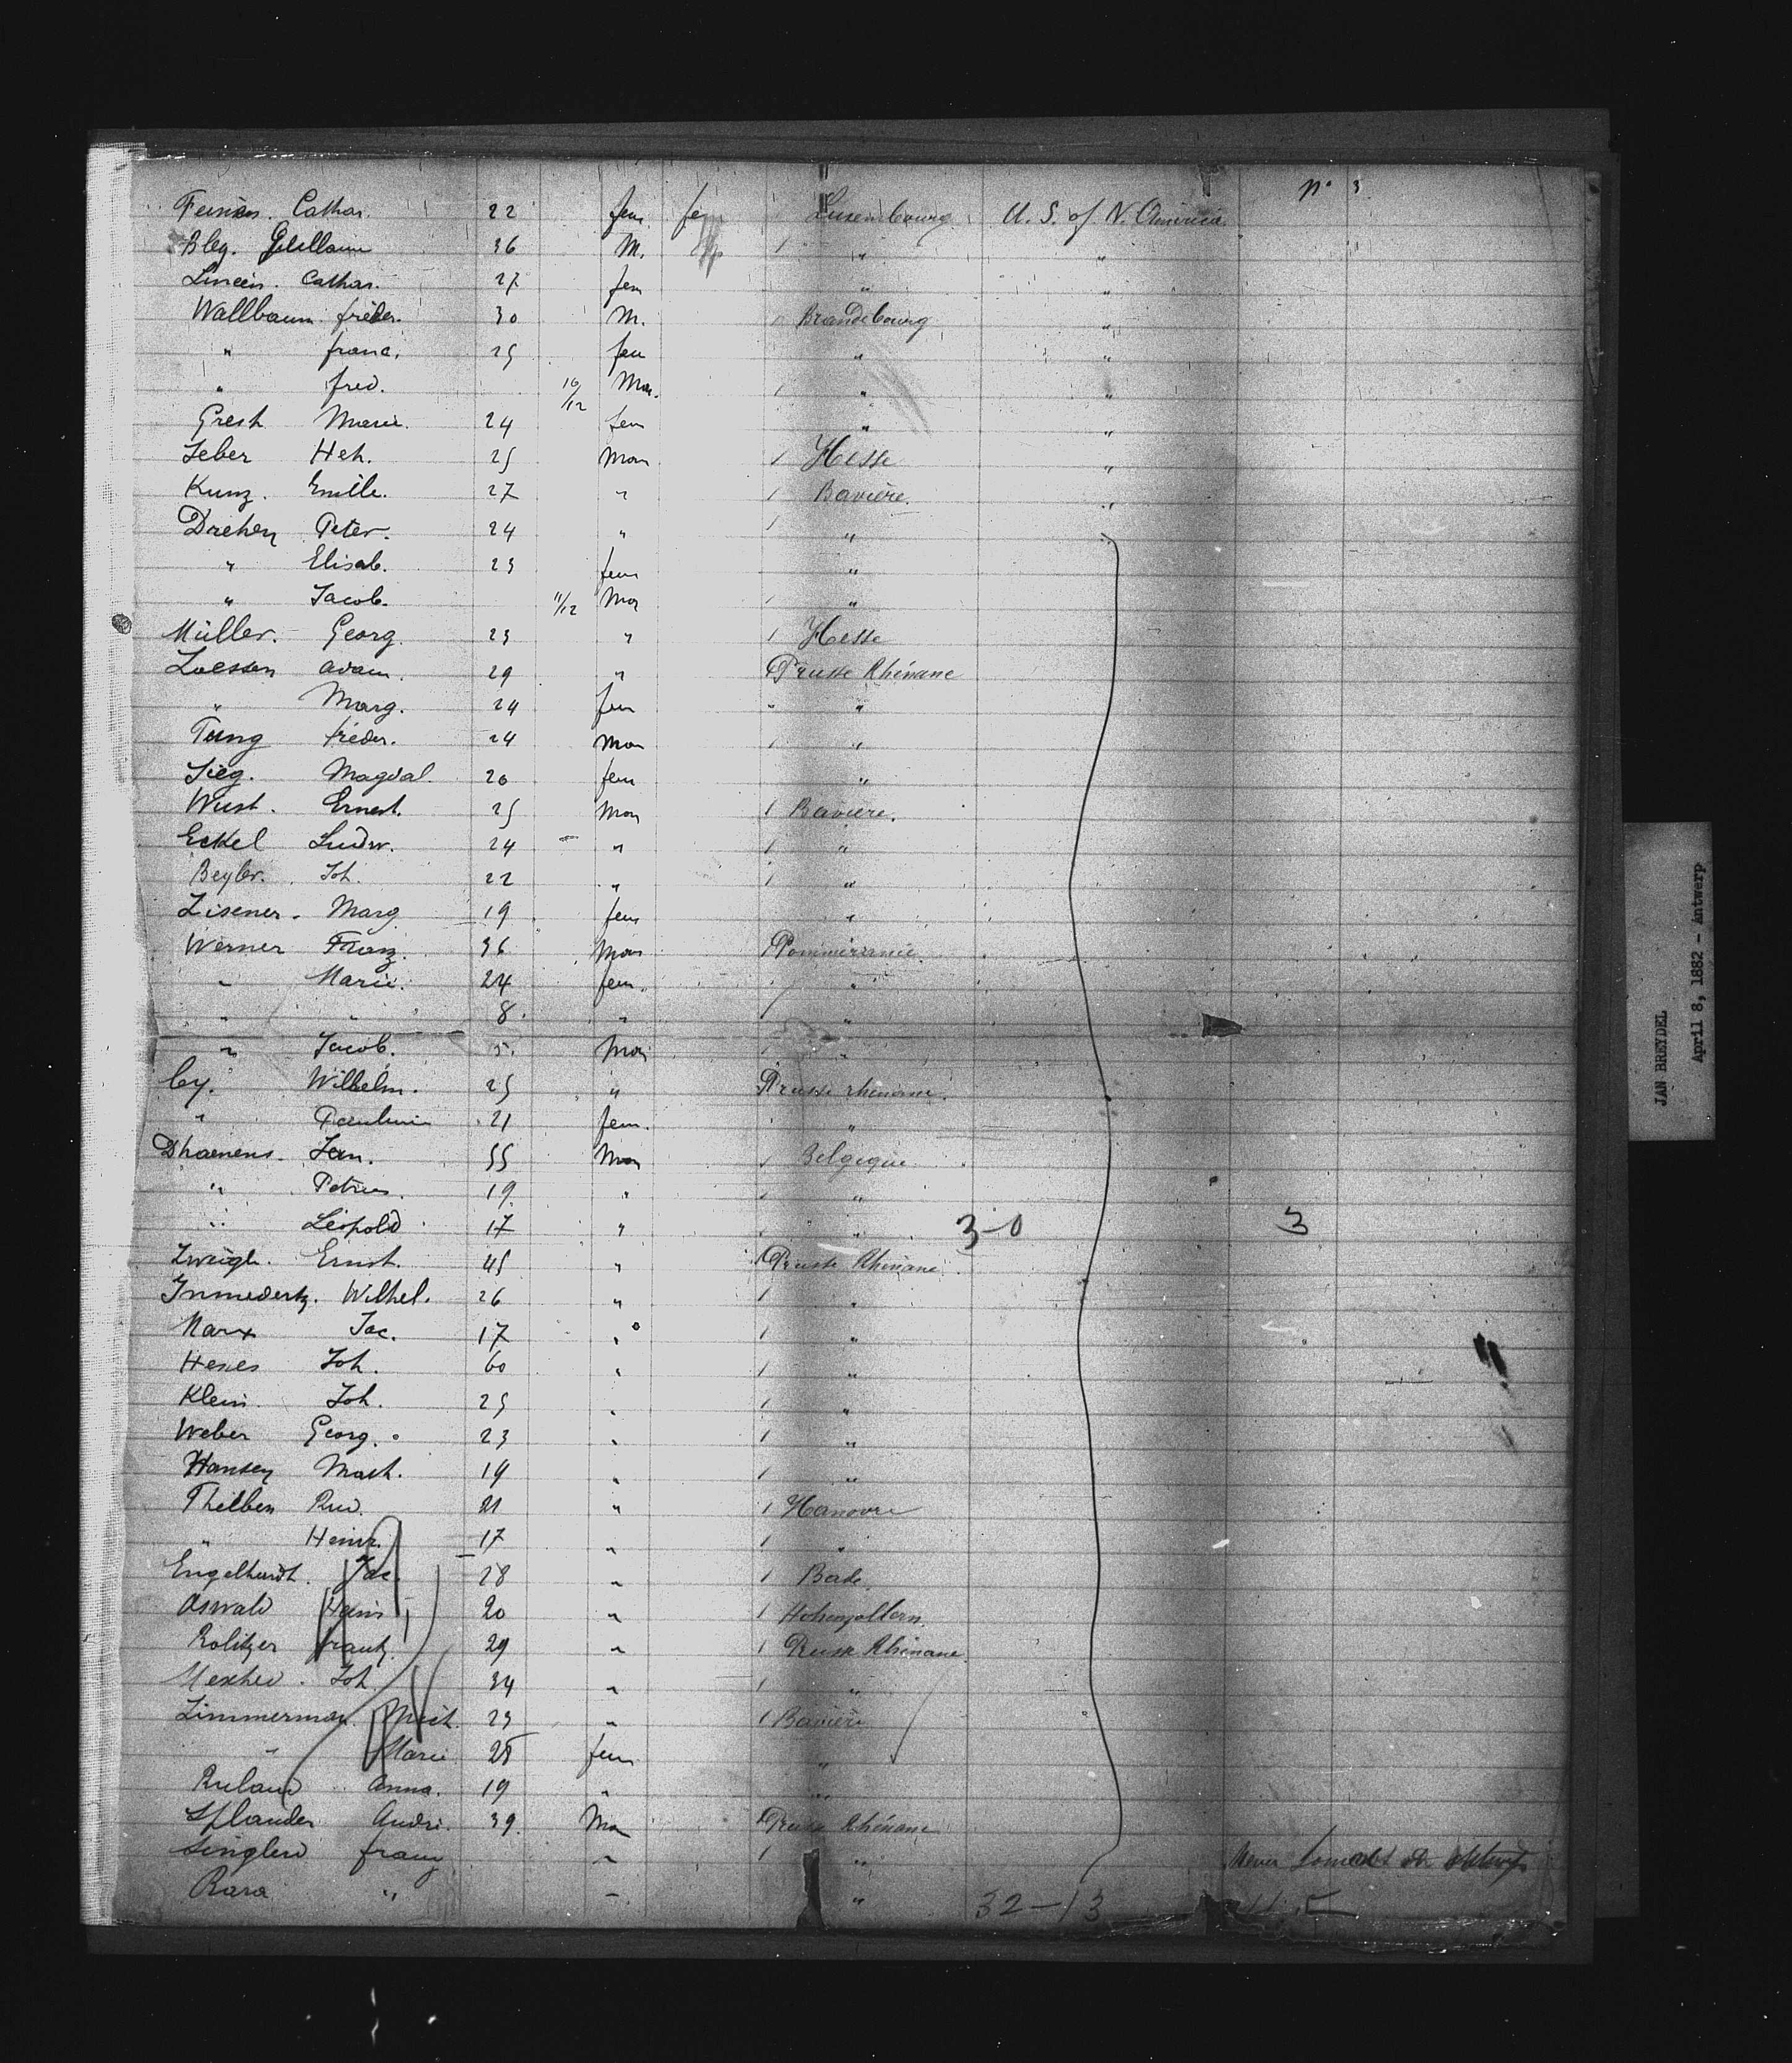 No 3
Cathar. 22 fem fem Luxembourg U. S. of N. America
Bley. Guillaum 36 M. 1 " "
Cathar. 27 fem " "
Wallbaum frieder. 30 M. Brandebourg "
" franc. 25 fem " "
" fred. 10/12 Man. 1 " "
Gresh Marie. 24 fem " "
Heh. 25 Man 1 Hesse "
Kunz. Emile. 27 " 1 Bavière. "
Peter. 24 " 1 " "
" Elisab. 23 fem "
" Jacob. 11/12 Man 1 "
Müller. Georg. 23 " 1 Hesse
Loessen adam. 29 " Prusse Rhénane
" Marg. 24 fem " "
frieder. 24 Man 1 "
Sieg. Magdal. 20 fem "
Wust. Ernest. 25 Man 1 Baviere.
Eckel Ludw. 24 " 1 "
Joh. 22 " 1 "
Zisener. Marg 19 fem "
Werner Franz. 36 Man Pommeranie
" Marie. 24 fem. "
" " 8. " "
" Jacob. 5. Man "
Wilhelm. 25 " Prusse rhenane.
" 21 fem. "
Dhaenens. Jan. 55 Man 1 Belgique
" Petrus. 19. " 1 "
" Léopold 17 " " 3-0 3
Ernst. 45 " Prusse Rhénane
Wilhel. 26 " 1 "
Marx Jac. 17 " 1 "
Joh. 60 " 1 "
Klein. Joh. 25 " 1 "
Weber Georg. 23 " 1 "
Hansen Math. 19 " 1 "
Thelben Rud. 21 " 1 Hanovre
" Heinr. 17 " 1 "
Engelhardt. Jac. 28 " 1 Bade.
Oswald 20 " 1 Hohenzollern.
Rolitzer frantz. 29 " 1 Prusse Rhénane.
Joh. 34 " 1 "
Zimmerman. Mich. 23 " 1 Baviere
" Marie 28 fem "
Ruland Anna. 19 " "
Splander Andre. 39. Man Prusse Rhénane
franz " 1 "
Rara " " " 32-13
JAN BREYDEL
April 8, 1882 - Antwerp